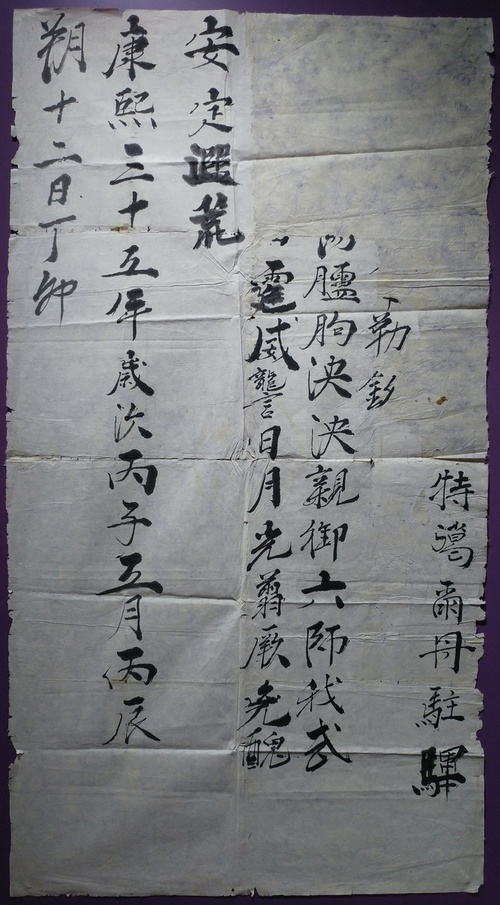 特噶爾丹駐驆
勒銘
臚朐泱泱親御六師我武
霆威讋日月光翦厥兇醜
安定遐荒
康熙三十五年歲次丙子五月丙辰
朔十二日丁卯